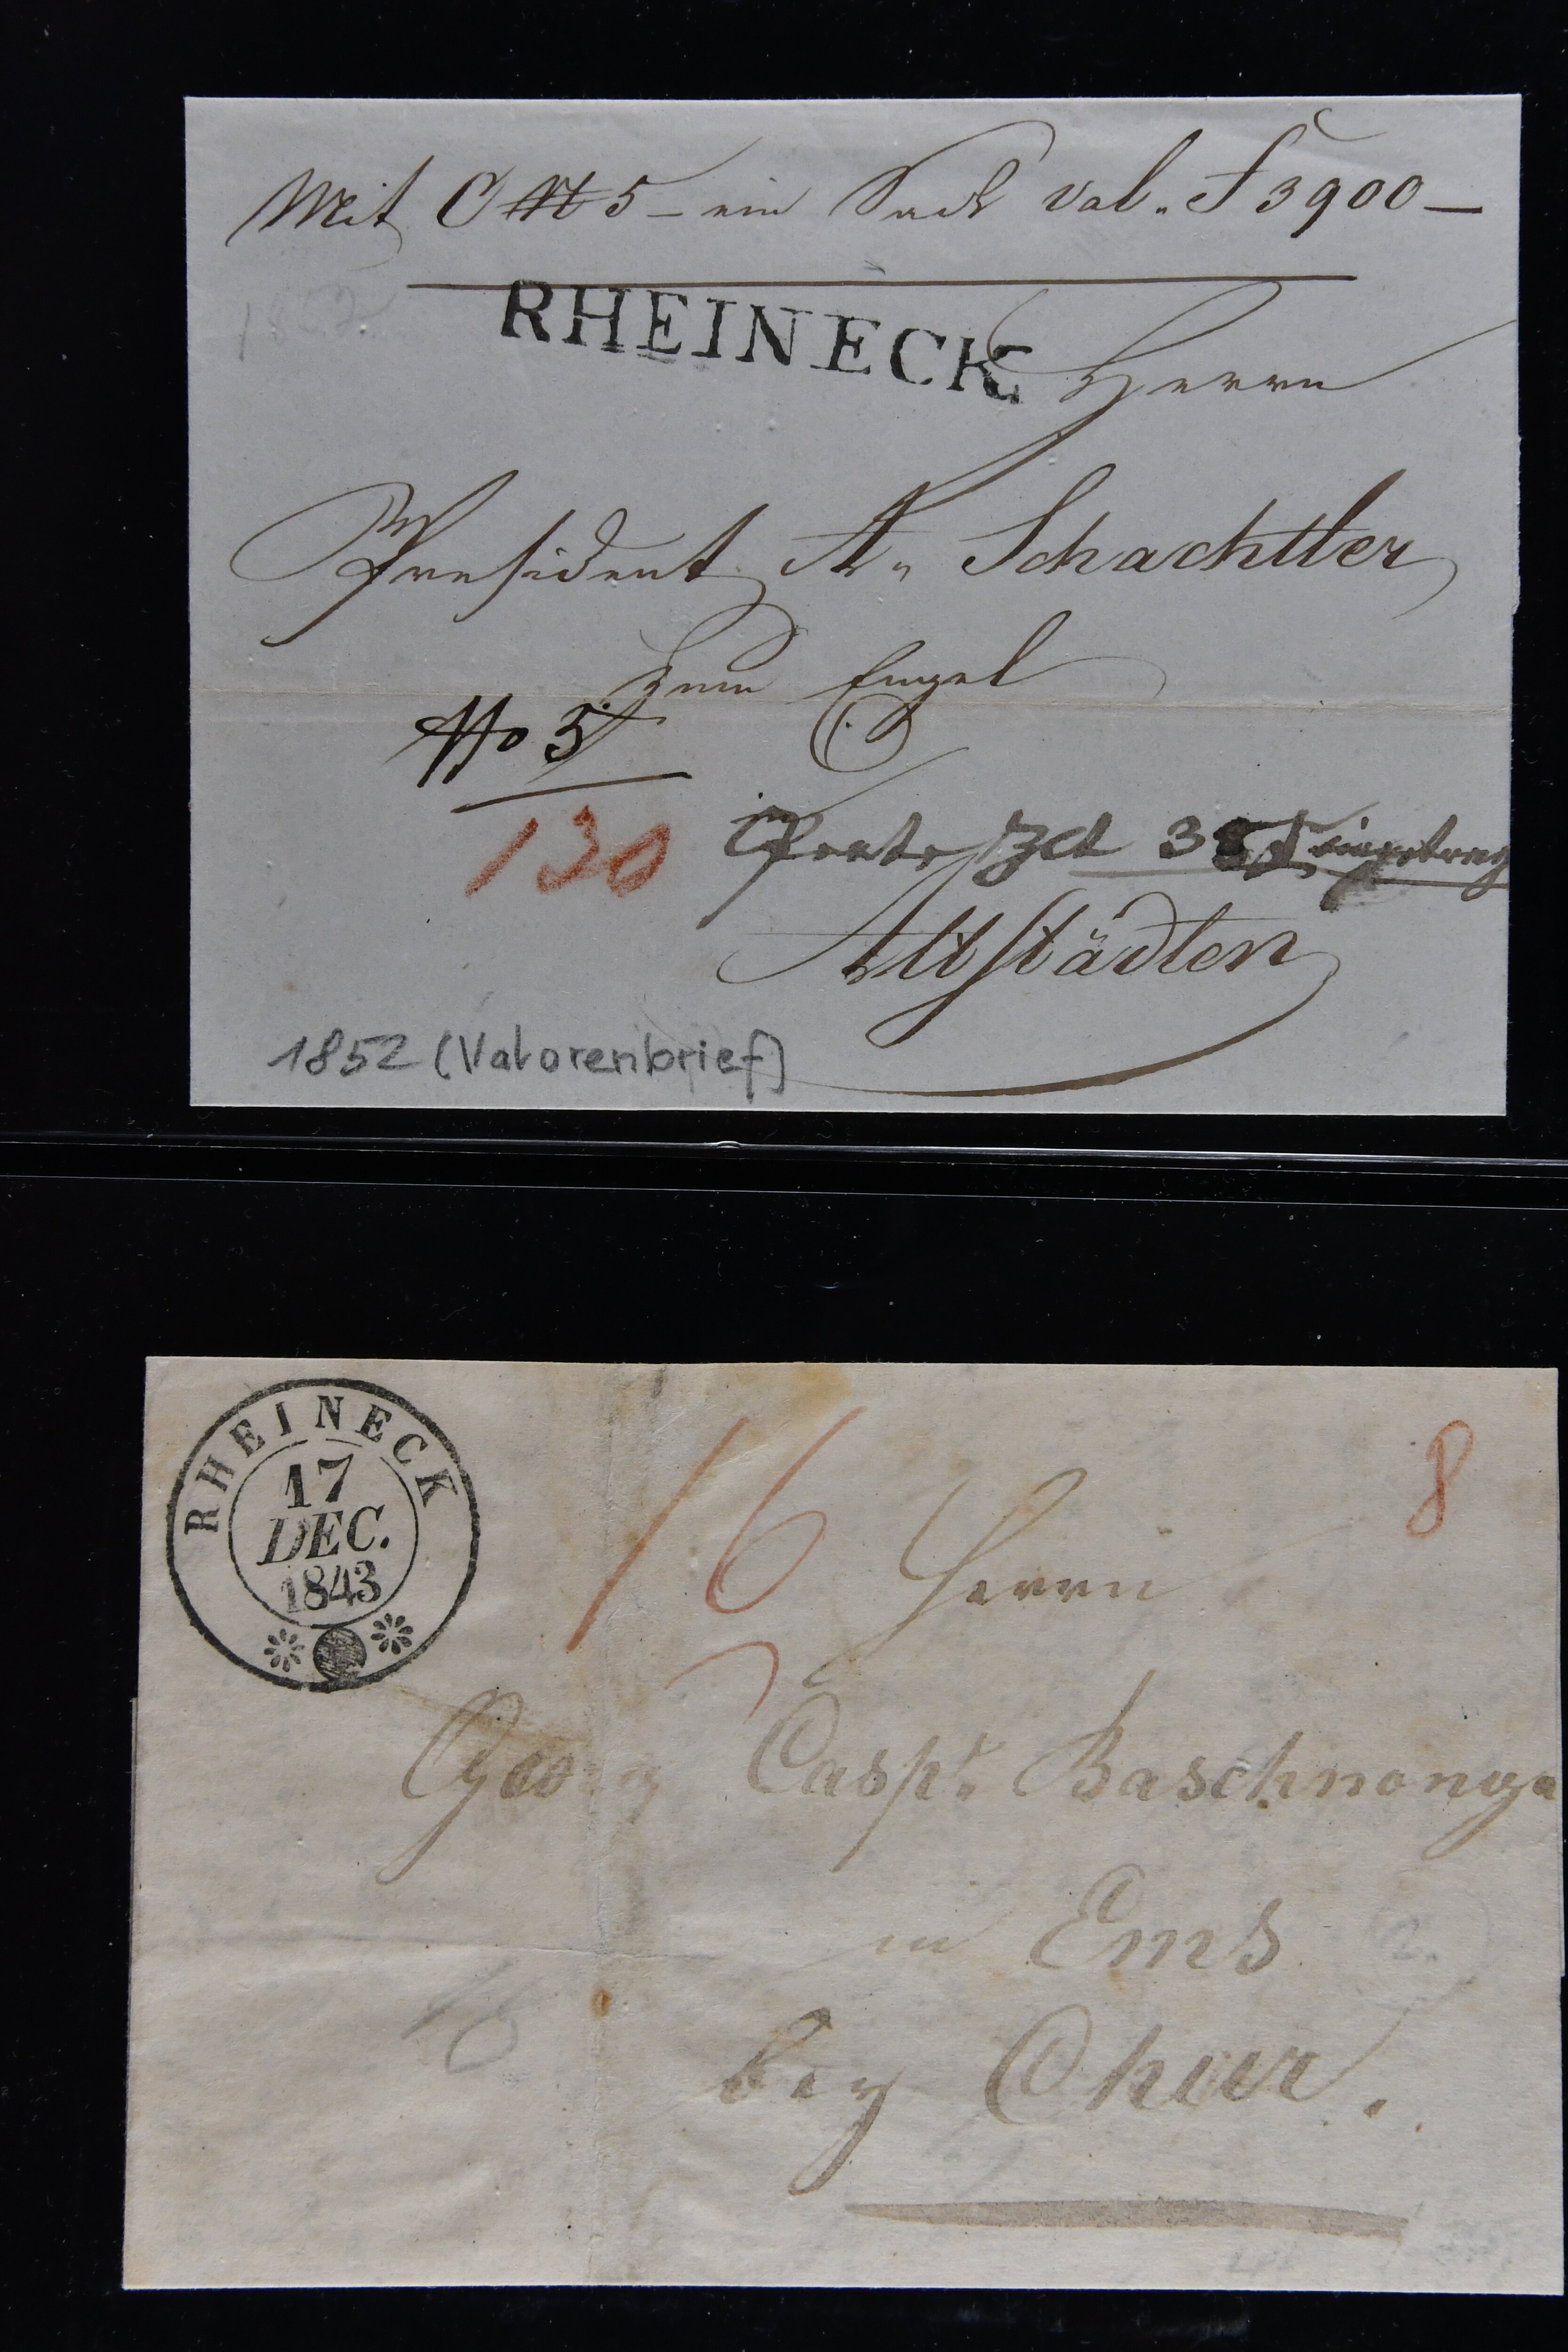 Mit C N 5 – ein Sack val. f 3900 –
1852
RHEINECK
Herrn
President A. Schachtler
zum Engel
No 5
130
in
Altstädten
1852 (Valorenbrief)
RHEINECK
17
DEC.
1843
16
8
Herrn
Georg Caspr. Baschnonga
in Ems
bey Chur.